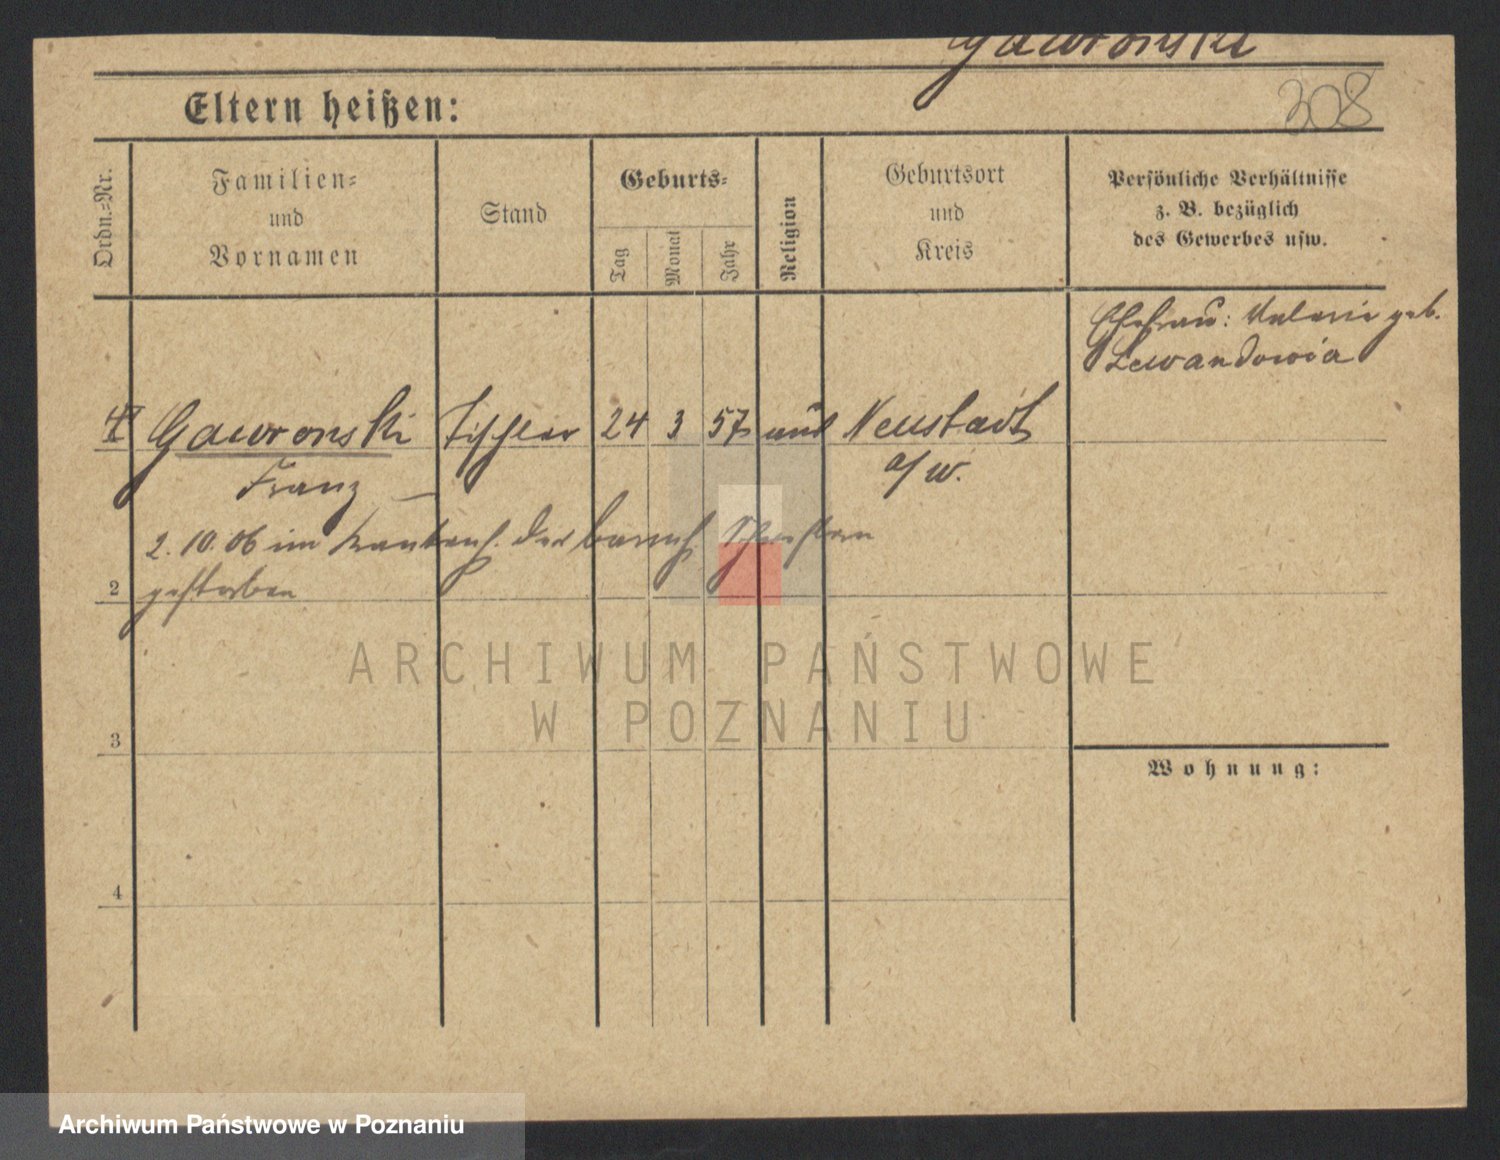 Gawronski
308
Eltern heißen:
Ordn.=Nr.
Familien=
und
Vornamen
Stand
Geburts=
Tag
Monat
Jahr
Religion
Geburtsort
und
Kreis
Persönliche Verhältnisse
z. B. bezüglich
des Gewerbes usw.
Ehefrau: Valeria geb.
Lewandowicz
Gawronski Tischler 24 3 57 Neustadt
Franz a/W.
2. 10. 06 im Krankenh. der barmh. Schwestern
2 gestorben
ARCHIWUM PAŃSTWOWE
W POZNANIU
3
Wohnung:
4
Archiwum Państwowe w Poznaniu